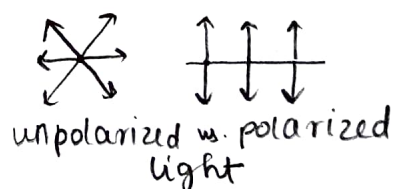 unpolarized vs. polarized
light